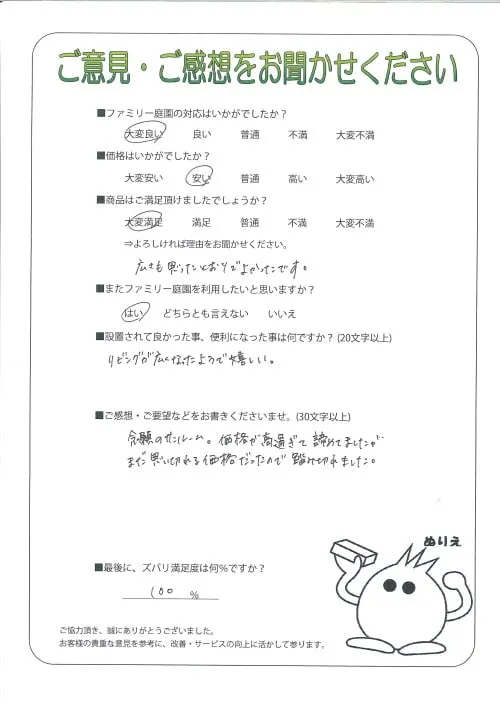 ご意見・ご感想をお聞かせください
■ファミリー庭園の対応はいかがでしたか？
大変良い 良い 普通 不満 大変不満
■価格はいかがでしたか？
大変安い 安い 普通 高い 大変高い
■商品はご満足頂けましたでしょうか？
大変満足 満足 普通 不満 大変不満
⇒よろしければ理由をお聞かせください。
広さも思ったとおりでよかったです。
■またファミリー庭園を利用したいと思いますか？
はい どちらとも言えない いいえ
■設置されて良かった事、便利になった事は何ですか？(20文字以上)
リビングが広くなったようで嬉しい。
■ご感想・ご要望などをお書きくださいませ。(30文字以上)
念願のサンルーム。価格が高過ぎて諦めてましたが
まだ思い切れる価格だったので踏み切れました。
ぬりえ
■最後に、ズバリ満足度は何％ですか？
100 %
ご協力頂き、誠にありがとうございました。
お客様の貴重な意見を参考に、改善・サービスの向上に活かして参ります。